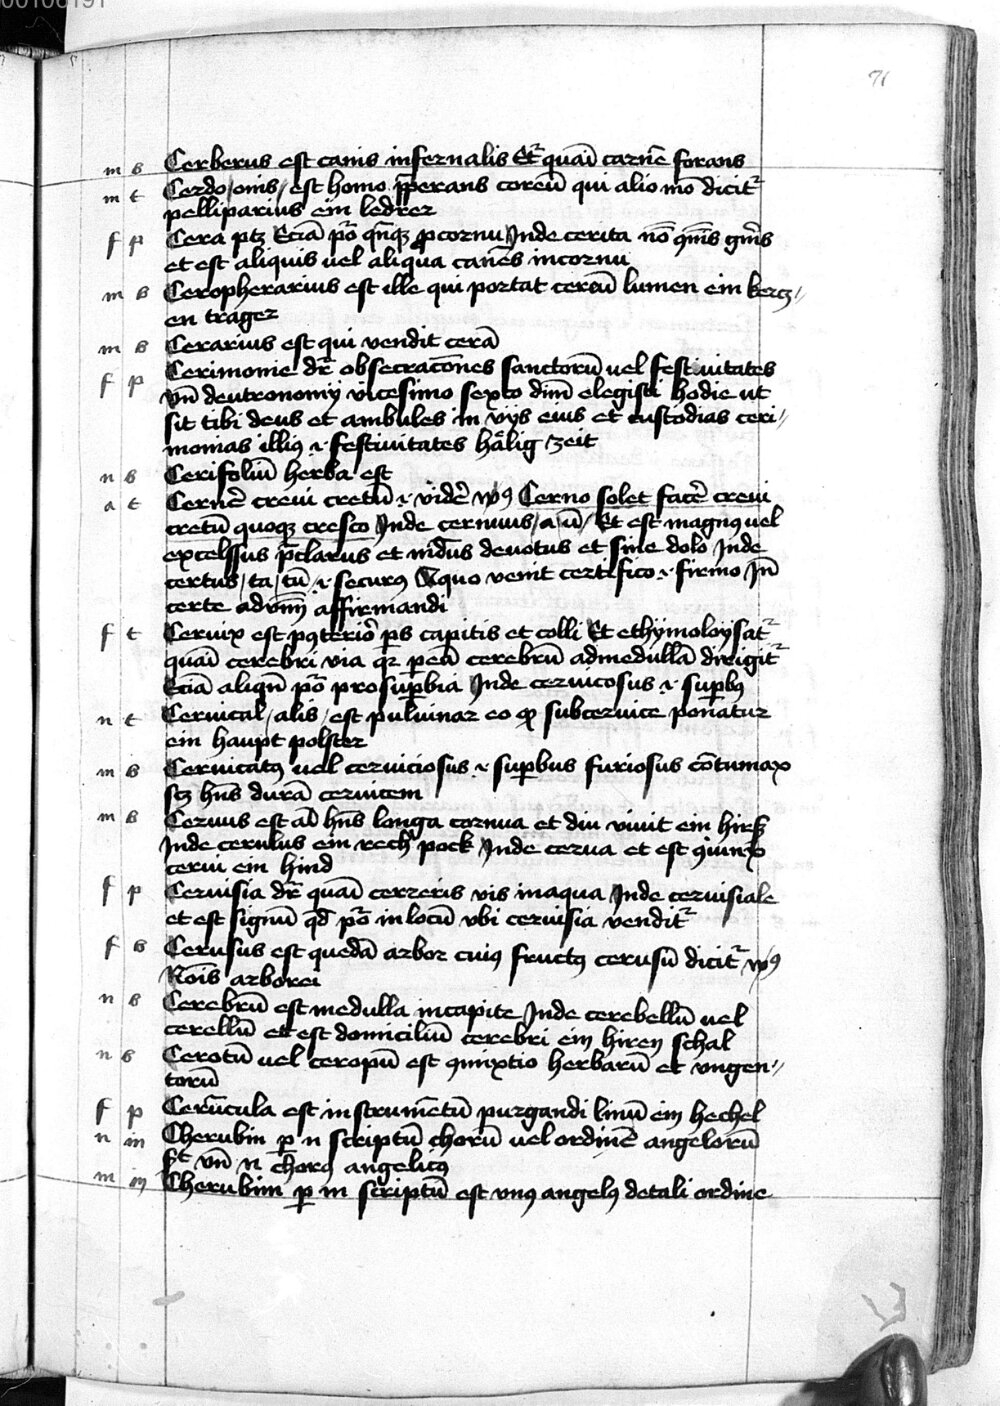 71
m s Cerberus est canis infernalis Et̄ quaſi carnē forans
m t Cerdo / onis / est homo p̄perans coreū qui alio mō dicit᷑
pelliparius ein ledrer
f p Cera ptꝫ Eciā pō qn̄qꝫ ꝓ cornu Inde cerita nō qn̄is gn̄is
et est aliquis uel aliqua canēs in cornu
m s Ceropherarius est ille qui portat cereū lumen ein kercz //
en trager
m s Cerarius est qui vendit cerā
f p Cerimonie dr̄ obsecracōnes sanctorū uel festiuitates
vn̄ deutronomij vicesimo sexto dūm elegisti hodie ut
sit tibi deus et ambules in vijs eius et custodias ceri //
monias illiꝰ ·i· festiuitates hälig zeit
n s Cerifoliū herba est
a t Cernē̄ creui cretū ·i· vidē̄ v̓sꝰ Cerno solet facē̄ creui
cretū quoqꝫ cresco Inde cernuus / a / ū / Et est magnꝰ uel
excelsus p̄clarus et md̄us deuotus et sine dolo Inde
certus / ta / tū ·i· securꝰ A quo venit certifico ·i· firmo In̄
certe aduḿ affirmandi
f t Ceruix est pꝰterior̄ ps capitis et colli Et ethymoloysat᷑
quaſi cerebri via qꝛ p eā cerebrū ad medullā dirigit᷑
Eciā aliqn̄ pō pro supbia Inde ceruicosus ·i· supbꝰ
n t Ceruical / alis / est puluinar eo ꝙ sub ceruice ponatur
ein haupt polster
m s Ceruicatꝰ uel ceruiciosus ·i· supbus furiosus cōtumax
scꝫ hn̄s durā ceruicem
m s Ceruus est aī hn̄s longa cornua et diu viuit ein hirß
Inde cerulus ein rech pock Inde cerua et est ꝯiunx
cerui ein hind
f p Ceruisia dr̄ quaſi cerreris vis in aqua Inde ceruisiale
et est signū qd̄ pō in locū vbi ceruisia vendit᷑
f s Cerusus est quedā arbor cuiꝰ fructꝰ cerusū dicit᷑ v̓sꝰ
Nōis arborei
n s Cerebrū est medulla in capite Inde cerebellū uel
cerellū et est domiciliū cerebri ein hiren schal
n s Cerotū uel ceropū est ꝯmixtio herbarū et vngen //
torū
f p Cerūcula est instrumētū purgandi linū ein hechel
n in Cherubin p n scriptū chorū uel ordinē angelorū
St̄ vn̄ n chorꝰ angelicꝰ
m in Cherubim p m scriptū est vnꝰ angelꝰ de tali ordine